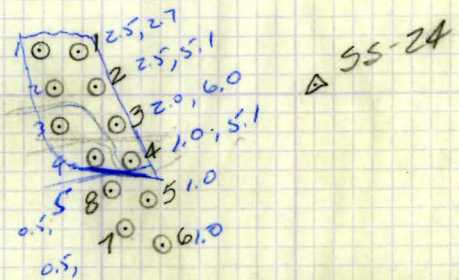 1 1 2.5, 2.7
SS-24
2 2 2.5, 5.1
3 3 2.0, 6.0
4 4 1.0, 5.1
5 8 5 1.0
0.5,
7 6 1.0
0.5,